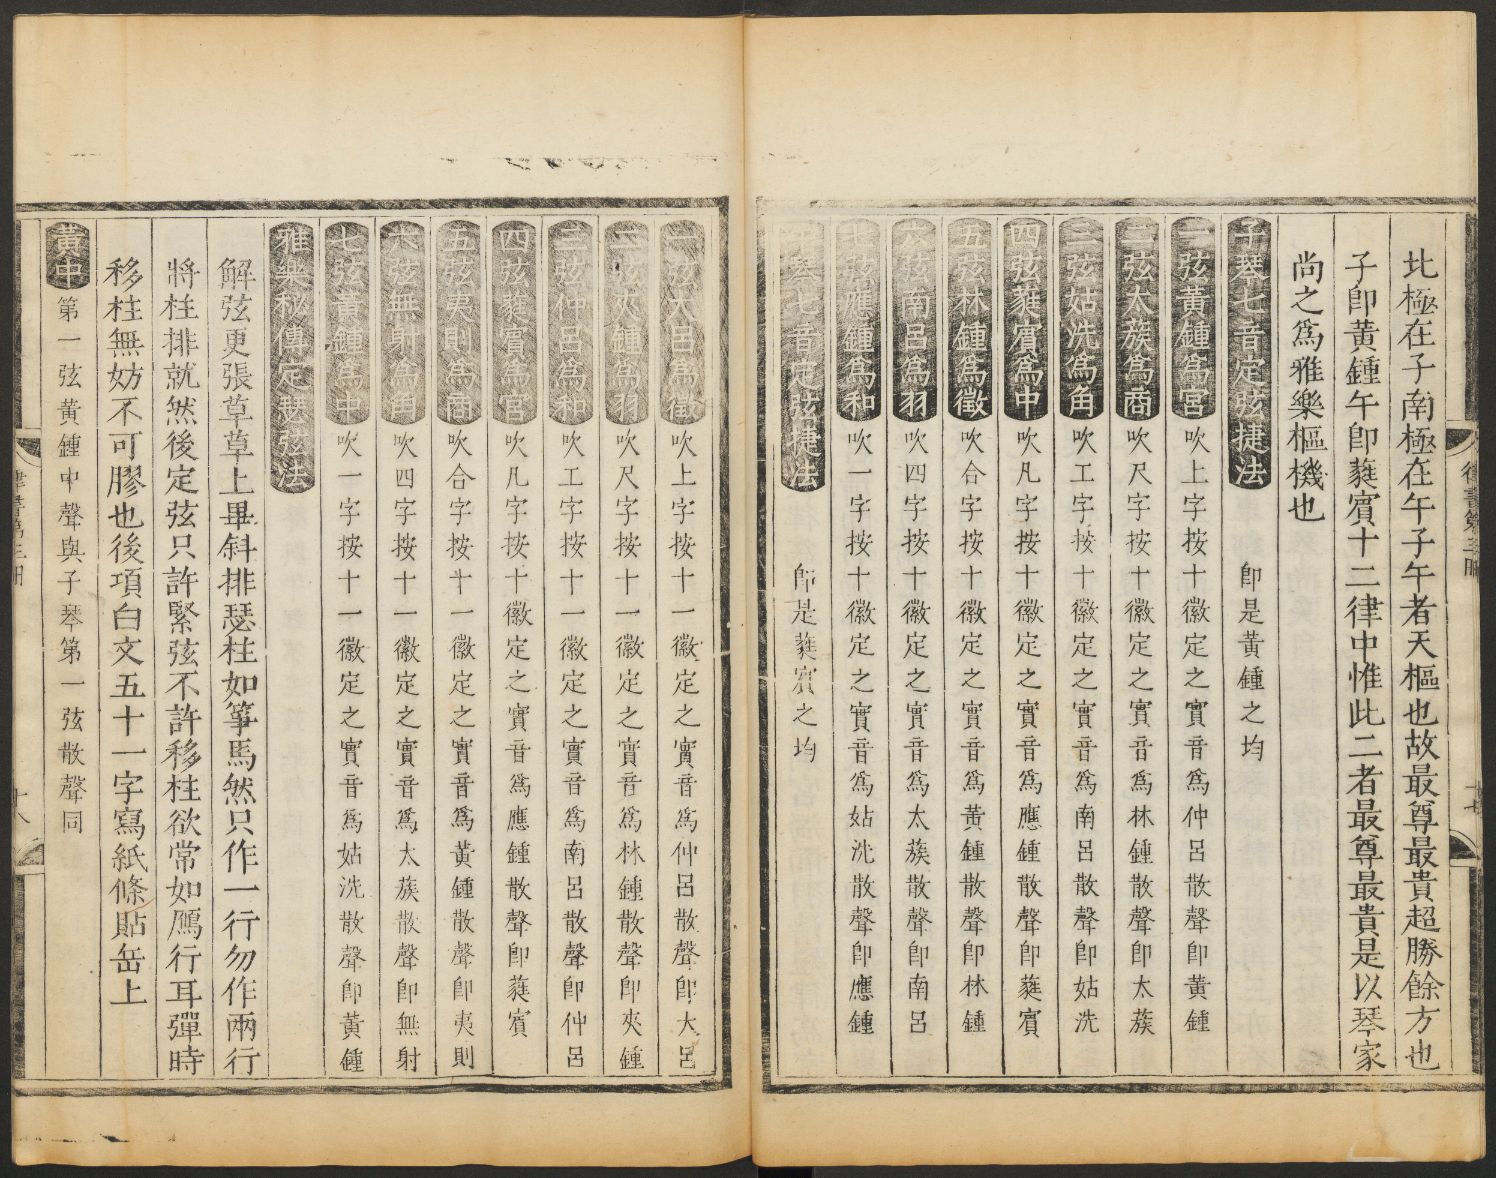 北極在子南極在午子午者天樞也故最尊最貴超勝餘方也
子卽黃鍾午卽蕤賓十二律中惟此二者最尊最貴是以琴家
尚之爲雅樂樞機也
子琴七音定弦捷法　卽是黃鍾之均
一弦黃鍾爲宮　吹上字按十徽定之實音爲仲呂散聲卽黃鍾
二弦太蔟爲商　吹尺字按十徽定之實音爲林鍾散聲卽太蔟
三弦姑洗爲角　吹工字按十徽定之實音爲南呂散聲卽姑洗
四弦蕤賓爲中　吹凡字按十徽定之實音爲應鍾散聲卽蕤賓
五弦林鍾爲徵　吹合字按十徽定之實音爲黃鍾散聲卽林鍾
六弦南呂爲羽　吹四字按十徽定之實音爲太蔟散聲卽南呂
七弦應鍾爲和　吹一字按十徽定之實音爲姑洗散聲卽應鍾
琴七音定弦捷法　卽是蕤賓之均
律書第三冊
十七
一弦大呂爲徵　吹上字按十一徽定之實音爲仲呂散聲卽大呂
二弦夾鍾爲羽　吹尺字按十一徽定之實音爲林鍾散聲卽夾鍾
三弦仲呂爲和　吹工字按十一徽定之實音爲南呂散聲卽仲呂
四弦蕤賓爲宮　吹凡字按十徽定之實音爲應鍾散聲卽蕤賓
五弦夷則爲商　吹合字按十一徽定之實音爲黃鍾散聲卽夷則
六弦無射爲角　吹四字按十一徽定之實音爲太蔟散聲卽無射
七弦黃鍾爲中　吹一字按十一徽定之實音爲姑洗散聲卽黃鍾
雅樂秘傳定瑟弦法
解弦更張草草上畢斜排瑟柱如箏馬然只作一行勿作兩行
將柱排就然後定弦只許緊弦不許移柱欲常如鴈行耳彈時
移柱無妨不可膠也後項白文五十一字寫紙條貼岳上
黃中　第一弦黃鍾中聲與子琴第一弦散聲同
律書第三冊
十八